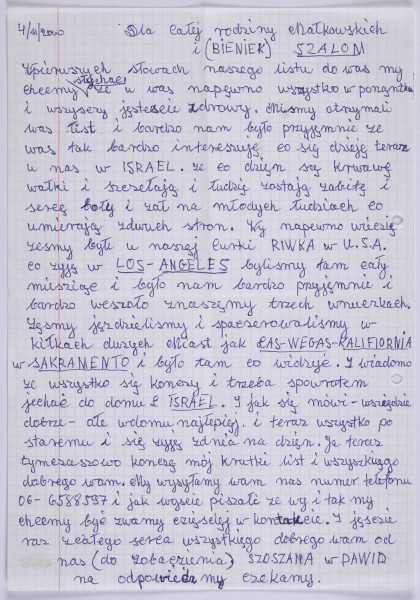 4/11/2000 Dla całej rodziny Małkowskich
i (BIENIEK) SZALOM
W pierwszych słowach naszego listu do was my
chcemy słychać że u was napewno wszystko w porządku
i wszyscy jesteście zdrowy. Myśmy otrzymali
was list i bardzo nam było przyjemnie ze
was tak bardzo interesuję co się dzięję teraz
u nas w ISRAEL. ze co dzięn są krwawę
walki i szczełają i ludzię zostają zabitę i
sercę boly i zal na młodych ludziach co
umierają zdwuch stron. Wy napewno wiecię
zesmy byli u naszej curki RIWKA w U.S.A.
co zyję w LOS-ANGELES bylismy tam cały
miesziąc i było nam bardzo przyjemnie i
bardzo weszoło znaszęmy trzech wnuczkach.
Zęsmy jęzdzielismy i spacserowalismy w
kilkach duzych Miast jak ŁAS-WEGAS-KALIFIORNIA
w SAKRAMENTO i było tam co widzyć. I wiadomo
ze wszystko się konczy i trzeba spowrotem
jechać do domu ISRAEL. I jak się mówi - wszędzie
dobrze - ale wdomu najlępięj. i teraz wszystko po
staremu i się zyję zdnia na dzięn. Ja teraz
tymczaszowo konczę mój krutki list i wszyszkięgo
dobrego wam. My wysyłamy wam nas numer telefonu
06-6588597 i jak wyscie piszali ze wy i tak my
chcemy być zwamy częsciej w kontakcie. I jęscie
raz zcałego serca wszystkięgo dobrego wam od
nas (do zobaczenia) SZOSZANA w DAWID
na odpowiedz my czekamy.